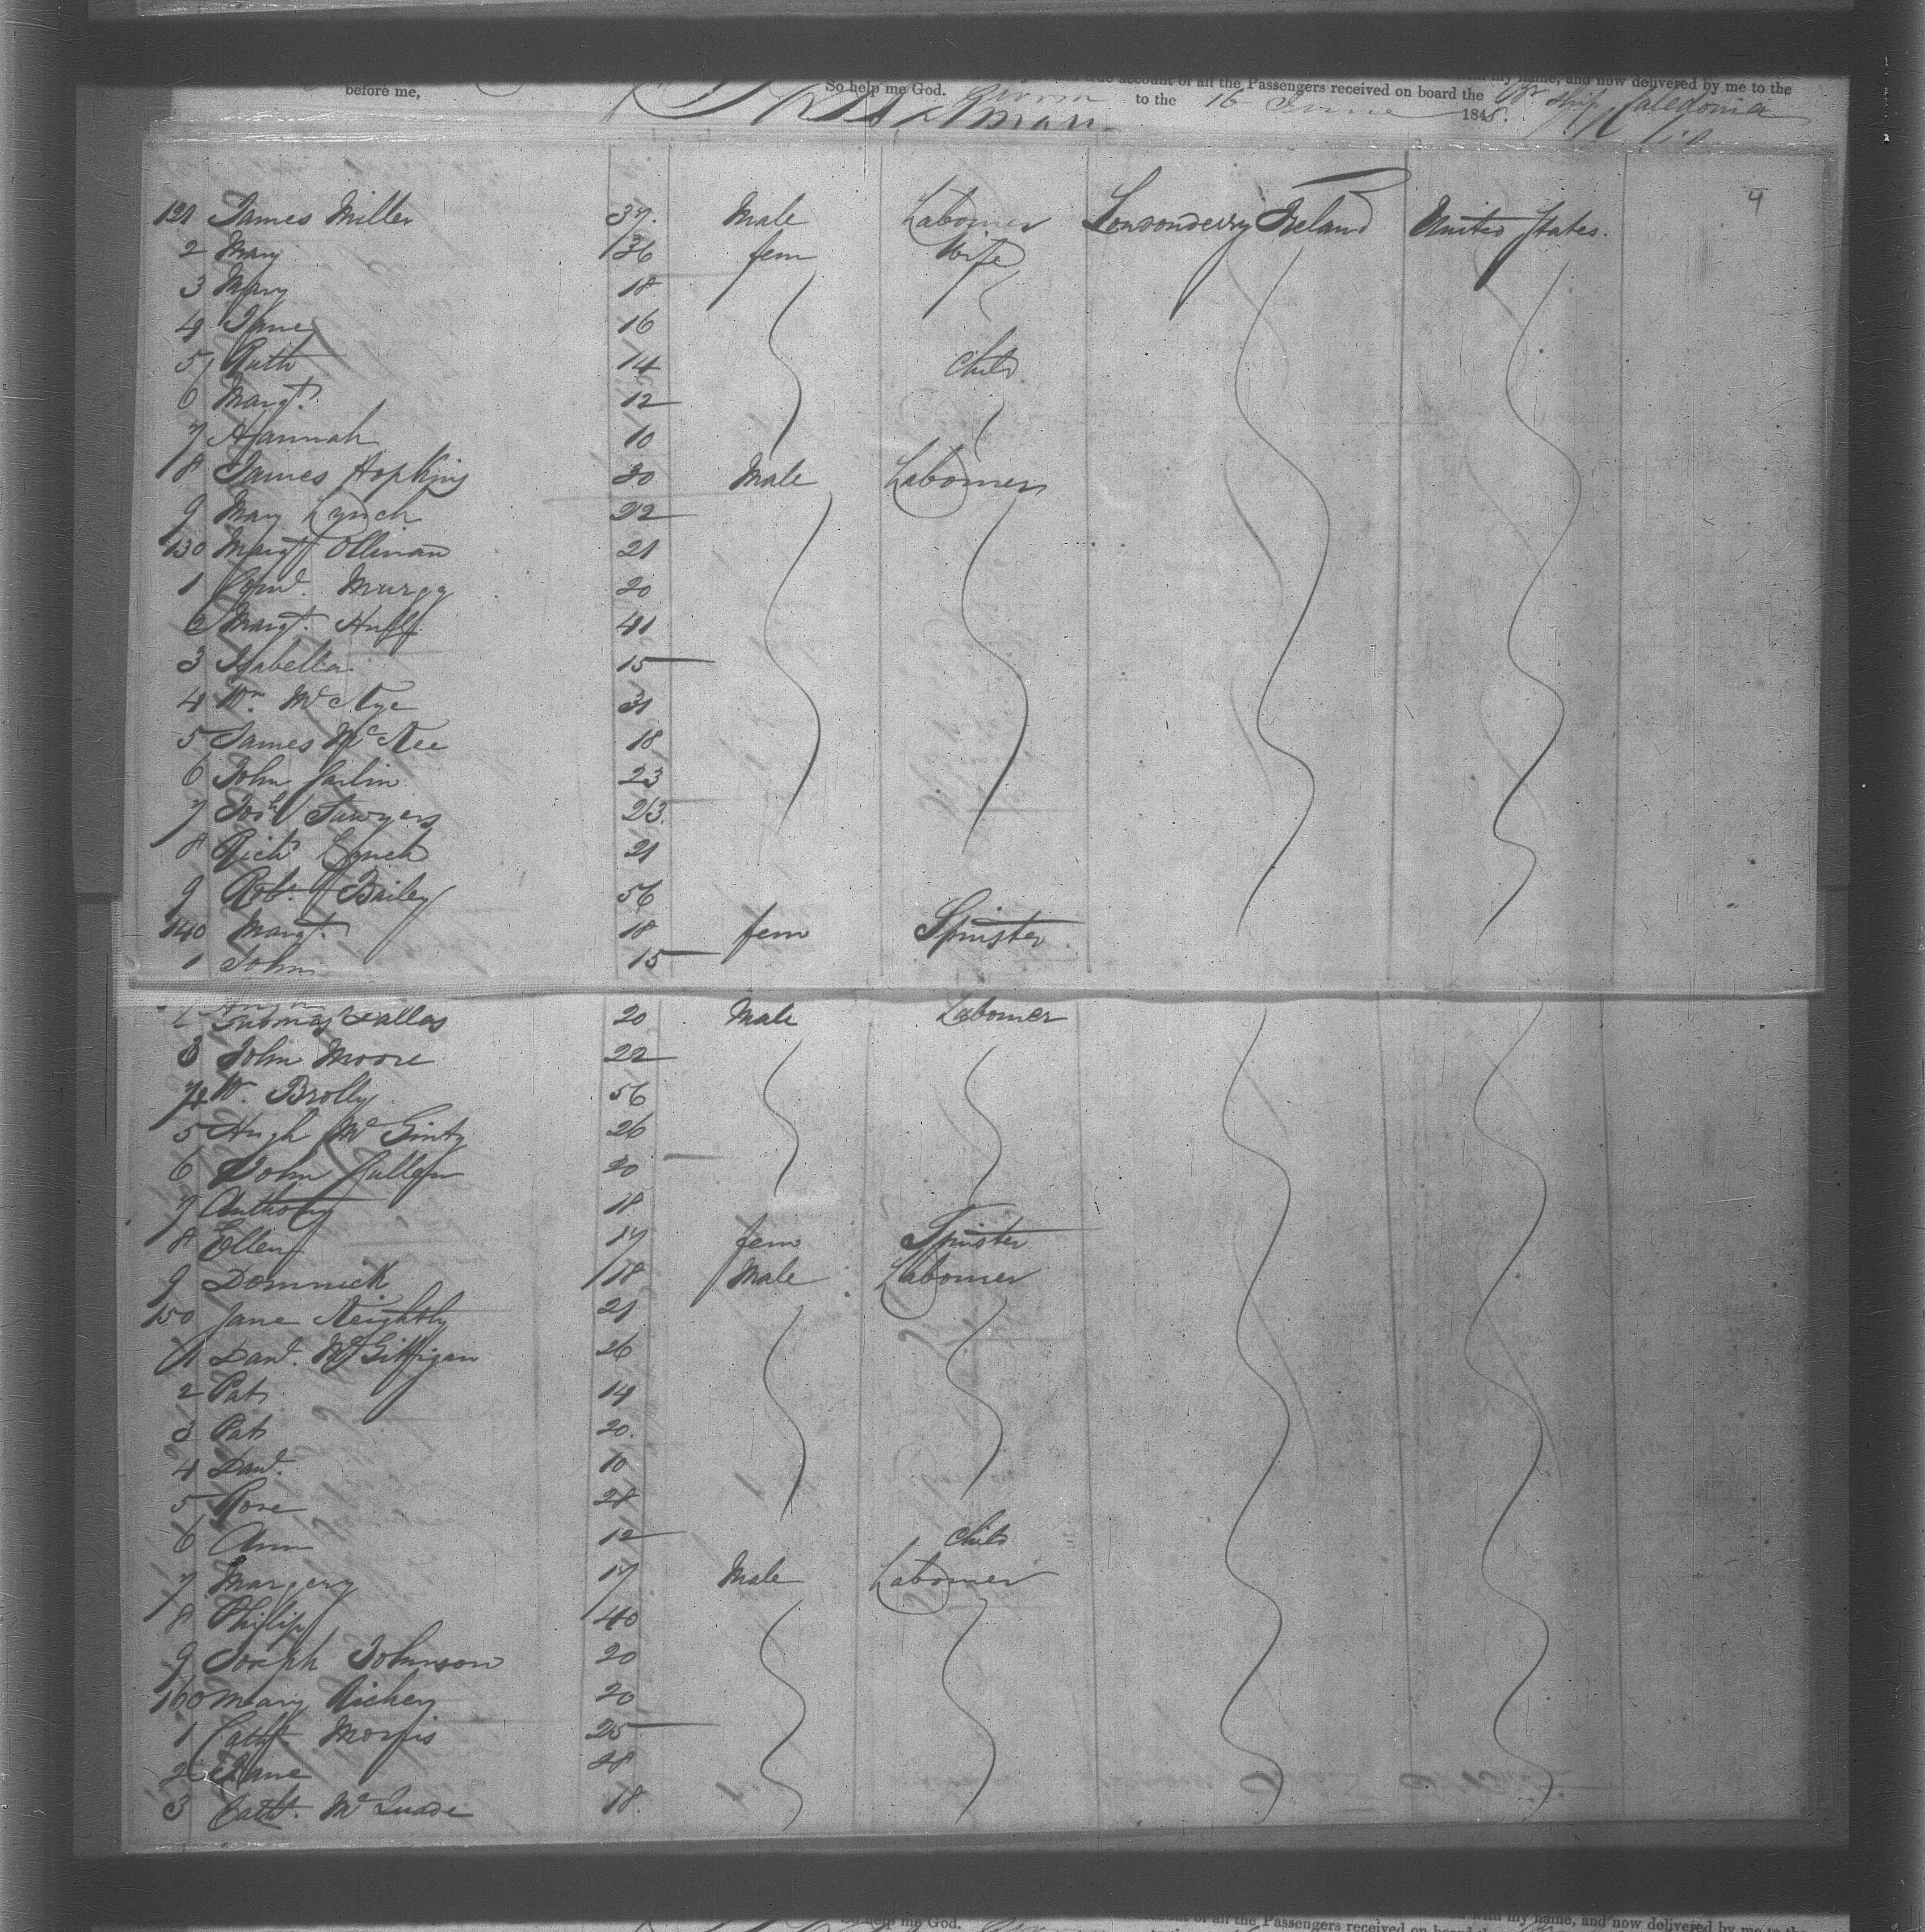 before me,
So help me God.
true account of all the Passengers received on board the
with my name, and now delivered by me to the
to the 16 June 1845. Br Ship Caledonia
4
121 James Miller 37. Male Labourer Londonderry Ireland United States.
2 Mary 36 fem Wife
3 Mary 18
4 Jane 16
5 Ruth 14 Child
6 Margt. 12
7 Hannah 10
8 James Hopkins 30 Male Labourer
9 Mary Lynch 22
130 Margt 21
1 20
2 Margt. Huff 41
3 Isabella 15
4 Wm. McNye 31
5 James McNee 18
6 John Carlin 23
7 Sawyers 23.
8 Richd Lynch 21
9 Robt. Bailey 56
140 Margt. 18 fem Spinster
1 John 15
2 Thomas Dallas 20 Male Labourer
3 John Moore 22
4 W. Brolly 56
5 Hugh McGinty 26
6 John Cullen 20
7 Anthony 18
8 Ellen 17 fem Spinster
9 Domnick 18 Male Labourer
150 Jane Keightly 21
1 Danl. McGilligan 26
2 Pat 14
3 Pat 20.
4 Danl. 10
5 Rose 28
6 Ann 12 Child
7 Margery 17 Male Labourer
8 Philip 40
9 Joseph Johnson 20
160 Mary Richey 20
1 Cathe. Morris 25
2 Jane 28
3 Cathe. McQuade 18.
So help me God.
account of all the Passengers received on board the
with my name, and now delivered by me to the